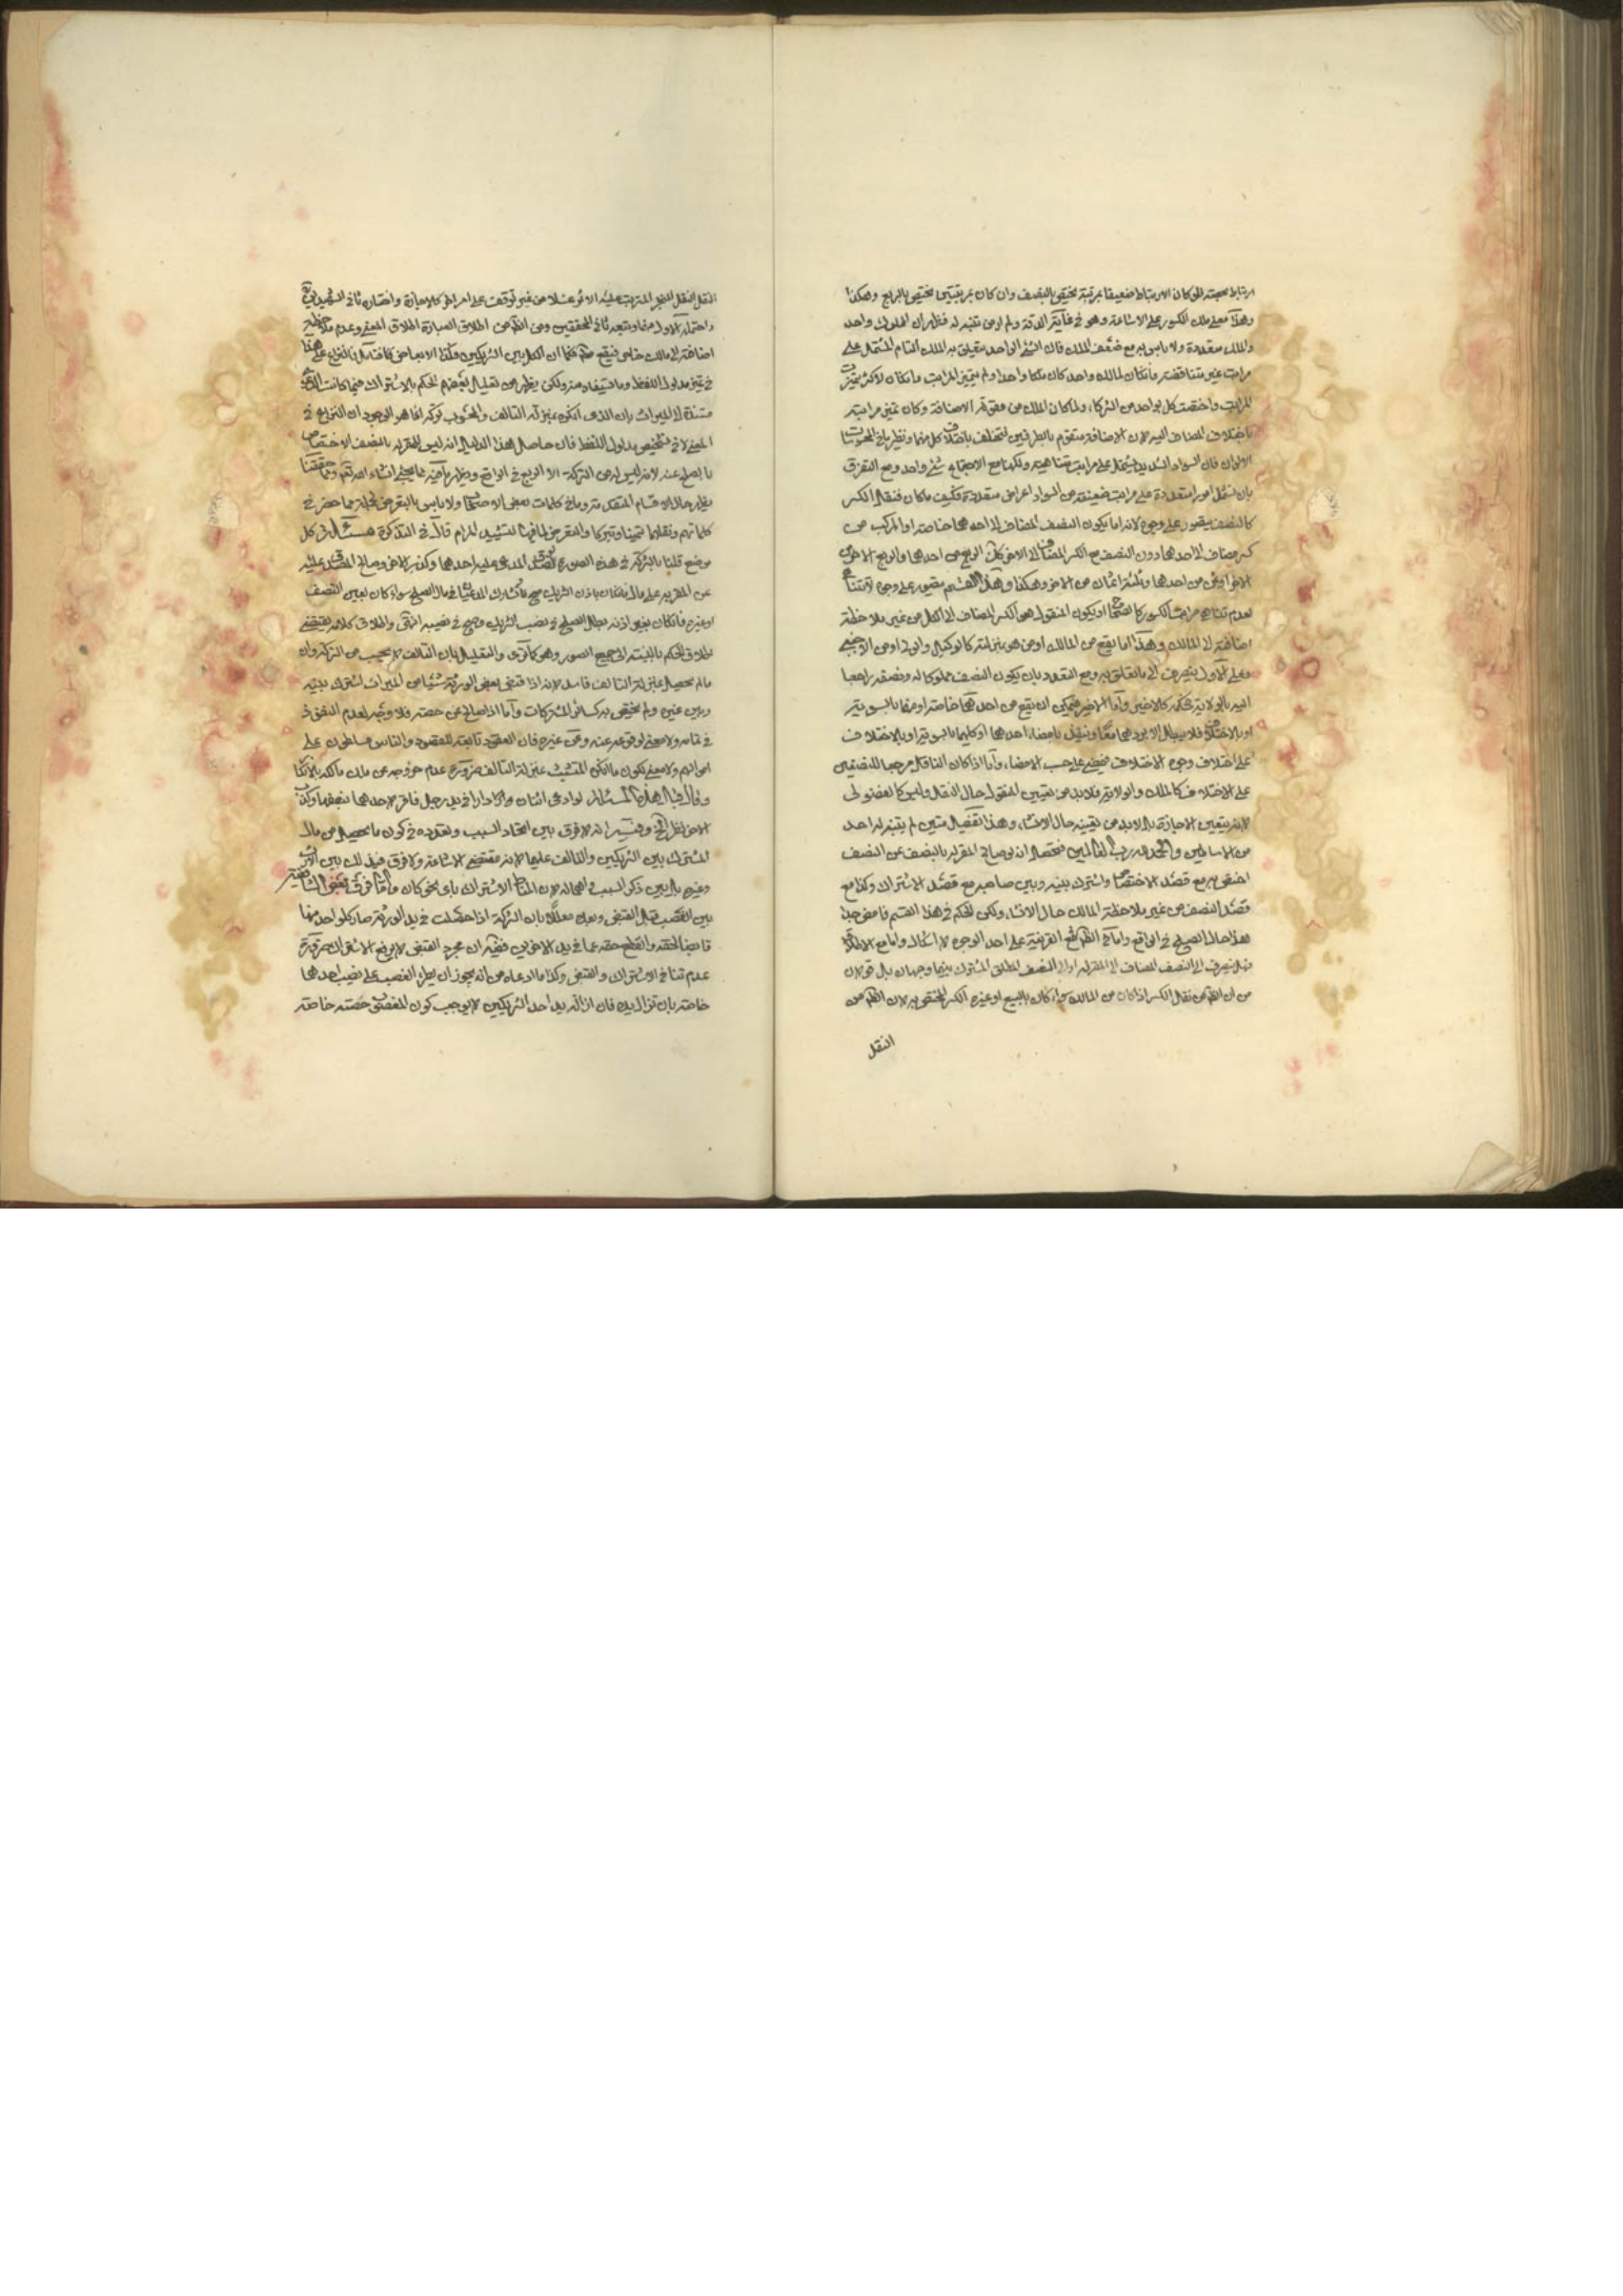 ارتباط بحصته لو كان الارتباط ضعيفا بمرتبة يختص بالنصف وان كان بمرتبتين يختص بالربع وهكذا
وهذا معنى ملك الكسور على الاشاعة وهو في غاية الدقة ولم ار من تنبه له فظهر ان المملوك واحد
والملك متعددة ولا باس به مع ضعف الملك فان الشئ الواحد يتعلق به الملك التام المشتمل على
مراتب غير متناقضة فان كان لمالك واحد كان ملكا واحدا ولم يتميز المراتب وان كان لاكثر تميزت
المراتب واختصت كل بواحد من الشركاء ولما كان الملك من مقولة الاضافة وكان تميز مراتبه
باختلاف المضاف اليه لان الاضافة يتقوم بالطرفين فتختلف باختلاف كل منهما ونظير ما في المحسوسات
الالوان فان السواد الشديد يشتمل على مراتب متناهية ولكنها مع الاجتماع شئ واحد ومع التفرق
بان تشمل امور متعددة على مراتب ضعيفة من السواد اعراض متعددة فكيف ما كان فنقل الكسر
كالنصف يتصور على وجوه لانه اما يكون النصف المضاف الى احدهما خاصة او المركب من
كسر مضاف لاحدهما دون النصف مع الكسر المضاف الى الاخر كان الربع من احدهما والربع الاخر من
الاخر او ثمن من احدهما وثلثة اثمان من الاخر وهكذا وهذا القسم يتصور على وجوه لا تتناهى
لعدم تناهي مراتب الكسور كما اتضح او يكون المنقول هو الكسر المضاف الى الكل من غير ملاحظة
اضافة الى المالك وهذا اما يقع من المالك او من هو بمنزلته كالوكيل والولي او من الاجنبي
فعلى الاول ينصرف الى ما يتعلق به ومع التعدد بان يكون النصف مملوكا له ونصفه راجعا
اليه بالولاية حكمه كالاخير واما الاخير فيمكن ان يقع من احدهما خاصة او منهما بالسوية
او بالاختلاف فلا يبطل الا بردهما معا وينفذ بامضاء احدهما او كليهما بالسوية او بالاختلاف
على اختلاف وجوه الاختلاف فيمضي على حسب الامضاء واما اذا كان الناقل مرجعا للنصفين
على الاختلاف كالملك والولاية فلا بد من تعيين المنقول حال النقل وليس كالفضولي
لانه يتعين بالاجازة بل لا بد من تعيينه حال الانشاء وهذا تفصيل متين لم يتنبه له احد
من الاساطين والحمد لله رب العالمين فتحصل انه لو صالح المقر له بالنصف عن النصف
اختص به مع قصد الاختصاص واشترك بينه وبين صاحبه مع قصد الاشتراك وكذا مع
قصد النصف من غير ملاحظة المالك حال الانشاء ولكن الحكم في هذا القسم غامض جدا
هذا حال الصلح في الواقع واما في الظاهر فمع القرينة على احد الوجوه لا اشكال واما مع الاطلاق
فهل ينصرف الى النصف المضاف الى المقر له او الى النصف المطلق المشترك بينهما وجهان بل قولان
من ان الظاهر من نقل الكسر اذا كان من المالك سواء كان بالبيع او غيره الكسر المختص به لان الظاهر من
النقل
النقل النقل المنجز المترتب عليه الاثر فعلا من غير توقف على امر اخر كالاجازة واختاره ثاني الشهيدين
واحتمله الاول منهما وتبعه ثاني المحققين ومن الظاهر من اطلاق العبارة اطلاق المعنى وعدم ملاحظة
اضافته الى مالك خاص فيقع منهما كما ان الكل بين الشريكين وكذا الابعاض كما فتامل فالنزاع على هذا
في تميز مدلول اللفظ وما يستفاد منه ولكن يظهر من تعليل بعضهم الحكم بالاشتراك فيما كانت الدعوى
مستندة الى الميراث بان الذي انكره بمنزلة التالف والمحسوب تركة انما هو الموجود ان النزاع في
المعنى لا في تشخيص مدلول اللفظ فان حاصل هذا الدليل انه ليس للمقر له بالنصف الاختصاص
بالصلح عنه لانه ليس له من التركة الا الربع في الواقع ويظهر ما فيه مما يجئ انشاء الله تعالى ومما حققنا
يظهر حال الاقسام المتقدمة وما في كلمات بعض الاصحاب ولا باس بالتعرض لجملة مما حضر في
كلماتهم ونقلها تيمنا وتبركا والتعرض لما فيها لتشييد المرام قال في التذكرة مسئلة في كل
موضع قلنا بالشركة في هذه الصور لو صدق المدعى عليه احدهما وكذب الاخر وصالح المصدق عليه
عن المقر به على مال فان كان باذن الشريك صح وتشارك المدعيان في مال الصلح سواء كان بعين النصف
او غيره فان كان بغير اذنه بطل الصلح في نصيب الشريك وصح في نصيبه انتهى واطلاق كلامه يقتضي
اطلاق الحكم بالنسبة الى جميع الصور وهو كما ترى والتعليل بان التالف لا يحسب من التركة وان
ما لم يحصل بمنزلة التالف فاسد لانه اذا قبض بعض الورثة شيئا من الميراث اشترك بينه
وبين غيره ولم يختص به كسائر المشتركات واما اذا صالح عن حصته فلا وجه لعدم النفوذ
في تمامه ولا معنى لوقوعه عنه وعن غيره فان العقود تابعة للقصود والناس مسلطون على
اموالهم ولا معنى لكون ما انكره المتشبث بمنزلة التالف ضرورة عدم خروجه عن ملك مالكه بالانكار
وقال قبل هذه المسئلة لو ادعى اثنان دارا في يد رجل فاقر لاحدهما بنصفها وكذب
الاخر نظر الخ وفيه انه لا فرق بين اتحاد السبب وتعدده في كون ما يحصل من مال
المشترك بين الشريكين والتالف عليهما لانه مقتضى الاشاعة ولا فرق في ذلك بين الارث
وغيره بل بين ذكر السبب واهماله لان المناط الاشتراك باي نحو كان واما فرق بعض الشافعية
بين القبض وقبل القبض وبعده معللا بان التركة اذا حصلت في يد الورثة صار كل واحد منهما
قابضا لحقه وانقطع حقه عما في يد الاخرين ففيه ان مجرد القبض لا يرفع الاشتراك ضرورة
عدم تنافي الاشتراك والقبض وكذا ما ادعاه من انه يجوز ان يطرء الغصب على نصيب احدهما
خاصة بان تزال يده فان ازالة يد احد الشريكين لا يوجب كون المغصوب حصته خاصة